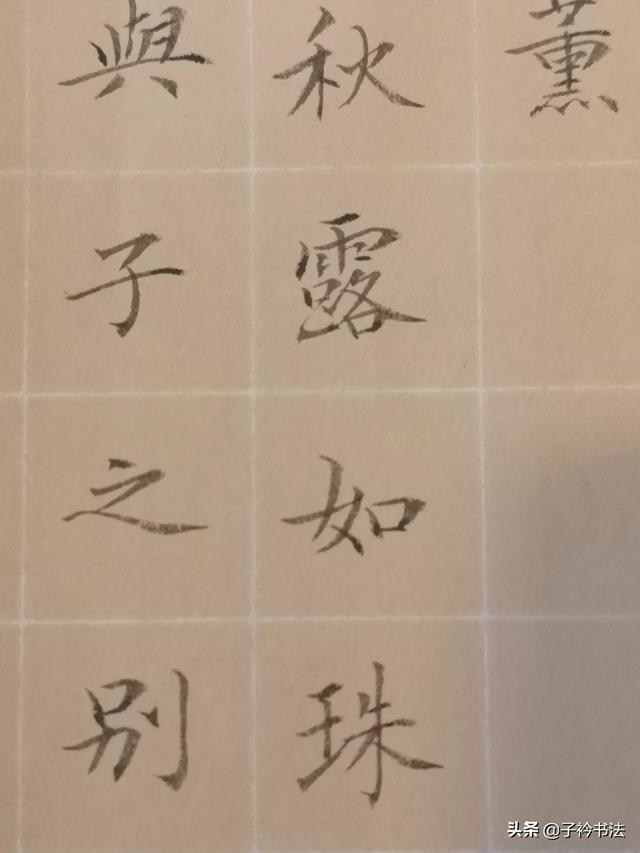 薰
秋露如珠
與子之别
头条 @子衿书法